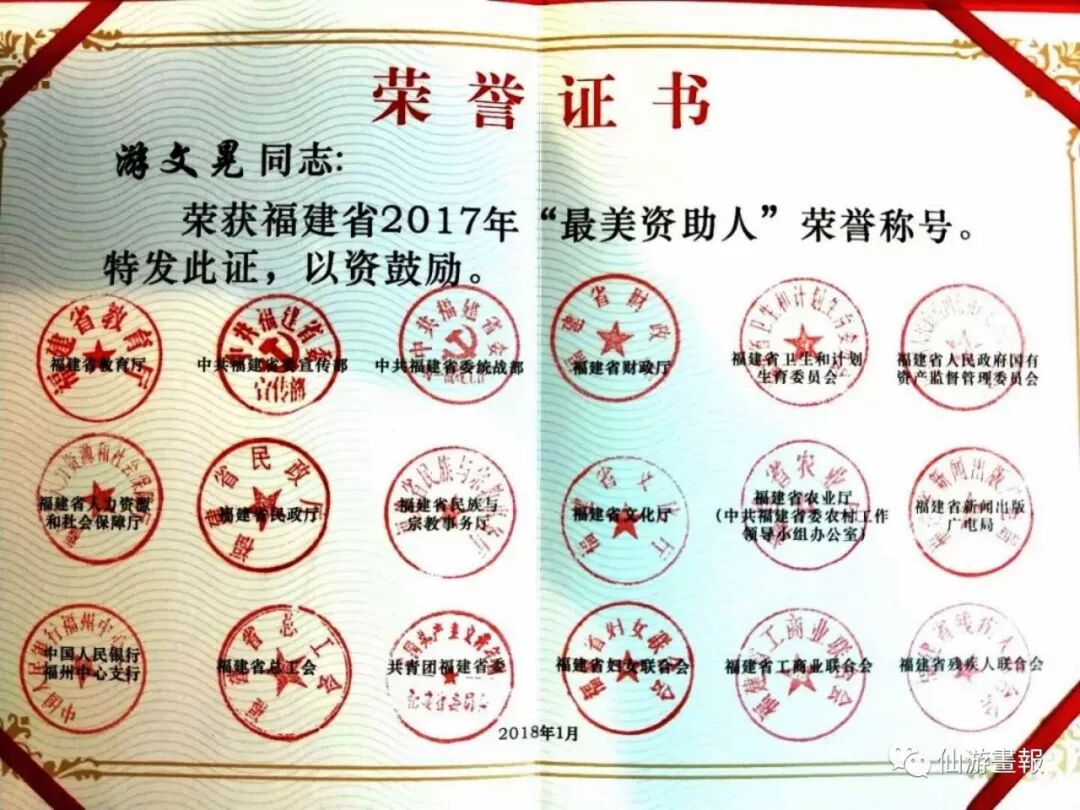 荣誉证书
游文晃同志:
荣获福建省2017年“最美资助人”荣誉称号。
特发此证，以资鼓励。
福建省教育厅
福建省教育厅
中共福建省委宣传部
中共福建省委统战部
福建省财政厅
福建省财政厅
福建省卫生和计划
生育委员会
福建省人民政府国有
资产监督管理委员会
福建省人力资源
和社会保障厅
福建省民政厅
福建省民政厅
福建省民族与
宗教事务厅
福建省文化厅
福建省文化厅
福建省农业厅
(中共福建省委农村工作
领导小组办公室)
福建省新闻出版
广电局
中国人民银行
福州中心支行
福建省总工会
共青团福建省委
福建省妇女联合会
福建省工商业联合会
福建省残疾人联合会
2018年1月
仙游畫報